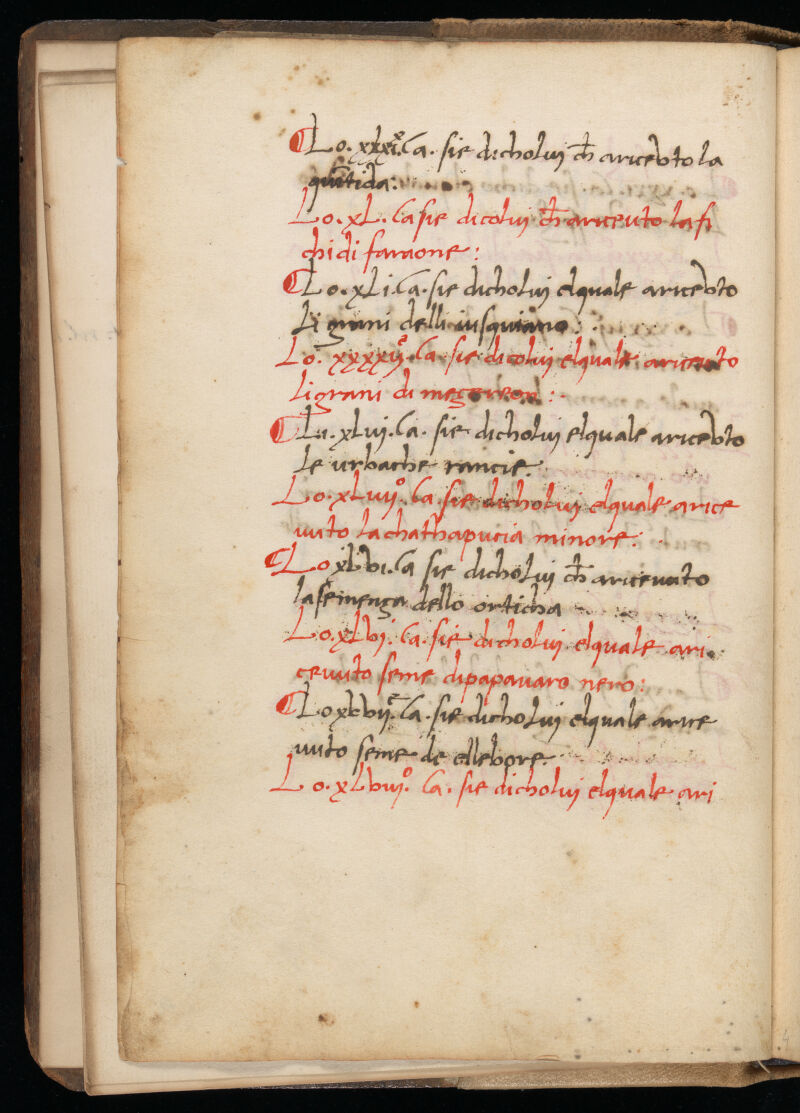 Lo. xxxix. Ca. sie dicholui ch̄ aricevto la
quītida:
Lo. xL. Ca sie dicolui ch̄ ariceuto la fi
chi di faraone:
Lo. xLi. Ca. sie dicholui elquale aricevto
Li grani delli iusquiano:
Lo. xxxxij°. Ca. sie dicolui elquale ariceuto
Li grani di megereon:
Lo. xLiij. Ca. sie dicholui elquale aricevto
Le urbache rancie.
Lo. xLiiij°. Ca. sie dicholui elquale arice
uuto la chathapucia minore:
Lo xLvi. Ca sie dicholui ch̄ ariceuuto
la semenza dello orticha
Lo. xLvj. Ca. sie dicholui elquale ari
ceuuto seme dipapauaro nero:
Lo xLvij. Ca. sie dicholui elquale arice
uuto seme de ellebore.
Lo. xLviij°. Ca. sie dicholui elquale ari